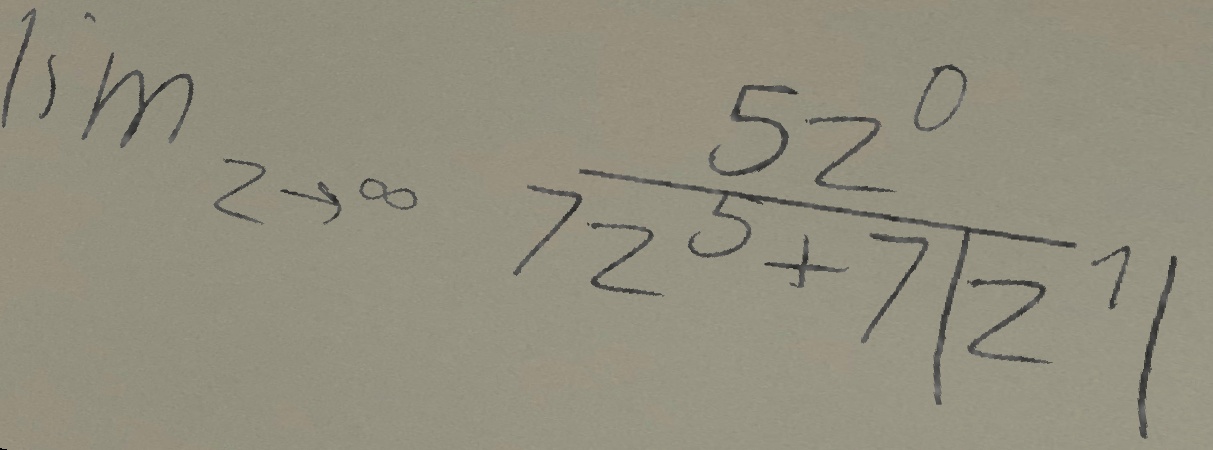 \lim_{z \to \infty} \frac{5z^0}{7z^5 + 7|z^1|}